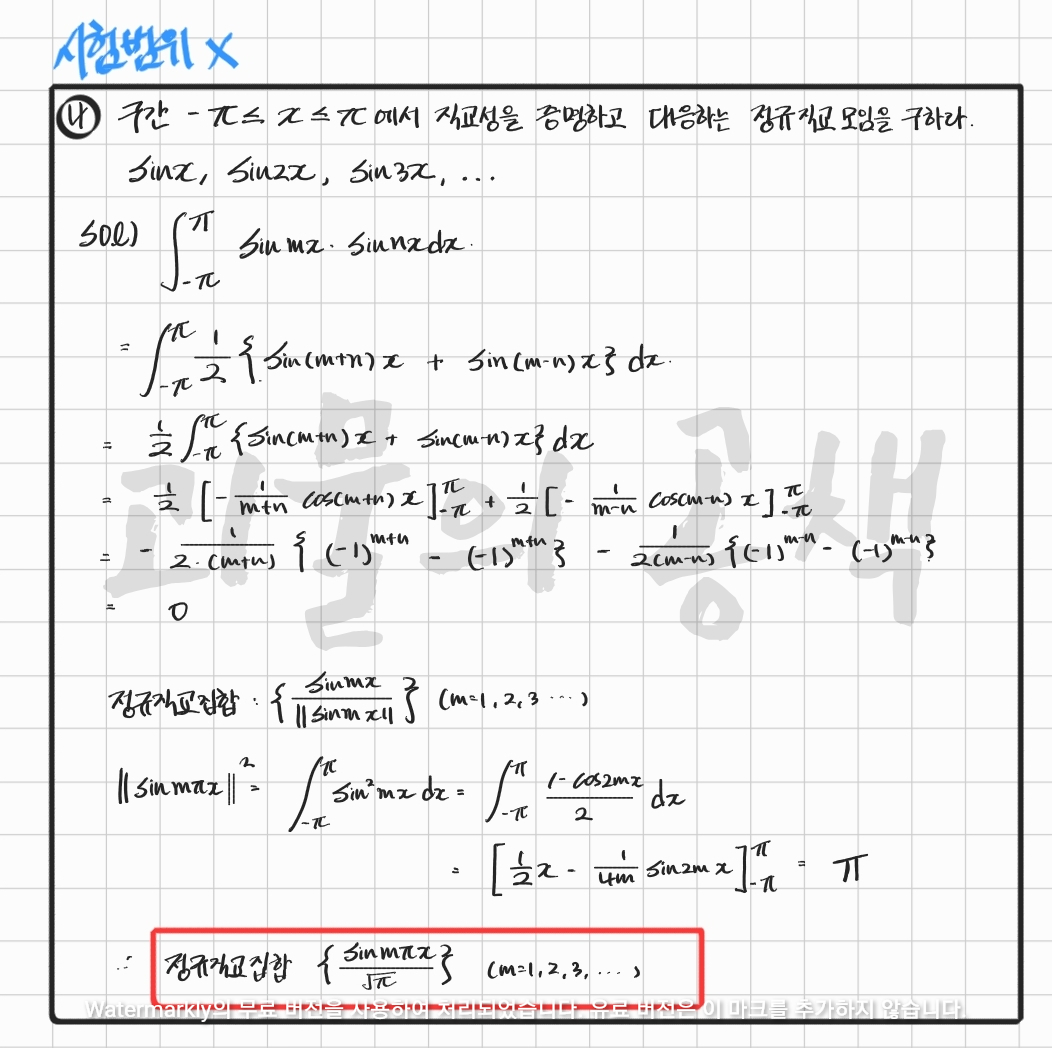 시험범위 X
(나) 구간 -π ≤ x ≤ π 에서 직교성을 증명하고 대응하는 정규직교모임을 구하라.
sinx, sin2x, sin3x, ...
sol) ∫_{-π}^{π} sin mx · sin nx dx.
= ∫_{-π}^{π} 1/2 { sin(m+n)x + sin(m-n)x } dx.
= 1/2 ∫_{-π}^{π} { sin(m+n)x + sin(m-n)x } dx
= 1/2 [ - 1/(m+n) cos(m+n)x ]_{-π}^{π} + 1/2 [ - 1/(m-n) cos(m-n)x ]_{-π}^{π}
= - 1/(2·(m+n)) { (-1)^{m+n} - (-1)^{m+n} } - 1/(2(m-n)) { (-1)^{m-n} - (-1)^{m-n} }
= 0
정규직교집합 : { sinmx / ||sinmx|| } (m=1, 2, 3 ...)
||sinmπx||² = ∫_{-π}^{π} sin²mx dx = ∫_{-π}^{π} (1-cos2mx)/2 dx
= [ 1/2 x - 1/(4m) sin2mx ]_{-π}^{π} = π
∴ 정규직교집합 { sinmπx / √π } (m=1, 2, 3, ...)
괴물의 공책
Watermarkly의 무료 버전을 사용하여 처리되었습니다. 유료 버전은 이 마크를 추가하지 않습니다.